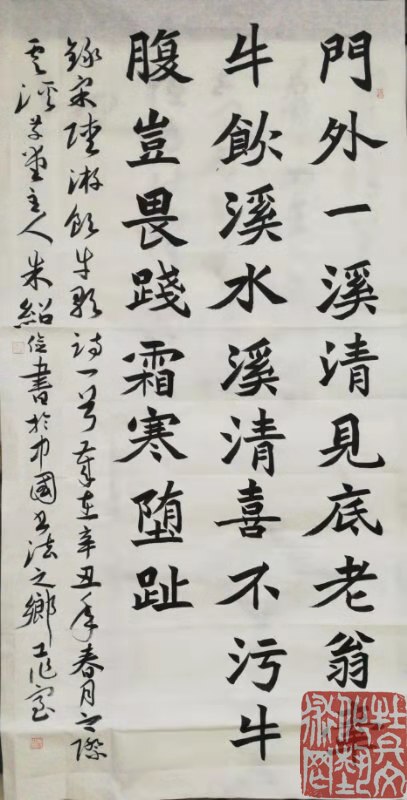 門外一溪清見底老翁
牛飲溪水溪清喜不污牛
腹豈畏踐霜寒堕趾
錄宋陸游飲牛歌詩一首 歲在辛丑年春月之際
雲溪草堂主人朱紹俭書於中國书法之鄉工作室